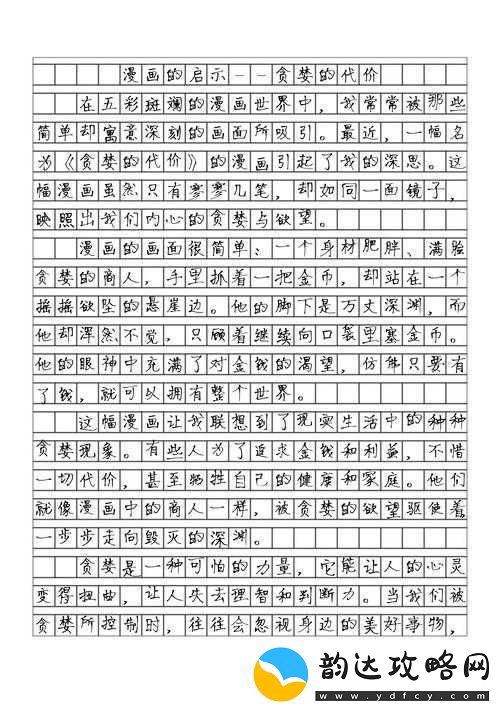 漫画的启示--贪婪的代价
在五彩斑斓的漫画世界中，我常常被那些
简单却寓意深刻的画面所吸引。最近，一幅名
为《贪婪的代价》的漫画引起了我的深思。这
幅漫画虽然只有寥寥几笔，却如同一面镜子，
映照出我们内心的贪婪与欲望。
漫画的画面很简单：一个身材肥胖、满脸
贪婪的商人，手里抓着一把金币，却站在一个
摇摇欲坠的悬崖边。他的脚下是万丈深渊，而
他却浑然不觉，只顾着继续向口袋里塞金币。
他的眼神中充满了对金钱的渴望，仿佛只要有
了钱，就可以拥有整个世界。
这幅漫画让我联想到了现实生活中的种种
贪婪现象。有些人为了追求金钱和利益，不惜
一切代价，甚至牺牲自己的健康和家庭。他们
就像漫画中的商人一样，被贪婪的欲望驱使着
一步步走向毁灭的深渊。
贪婪是一种可怕的力量，它能让人的心灵
变得扭曲，让人失去理智和判断力。当我们被
贪婪所控制时，往往会忽视身边的美好事物，
韵达攻略网
www.ydfcy.com